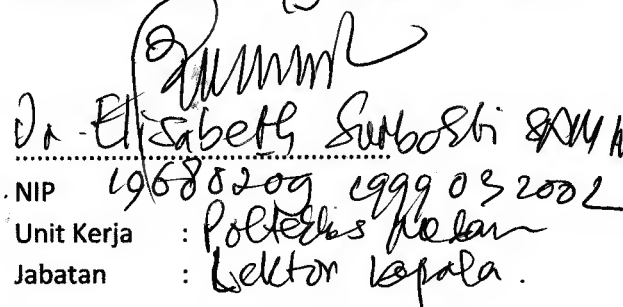 Dr. Elisabeth Surbakti SKM M
NIP 19680209 1999032002
Unit Kerja : Poltekkes Medan
Jabatan : Lektor Kepala.